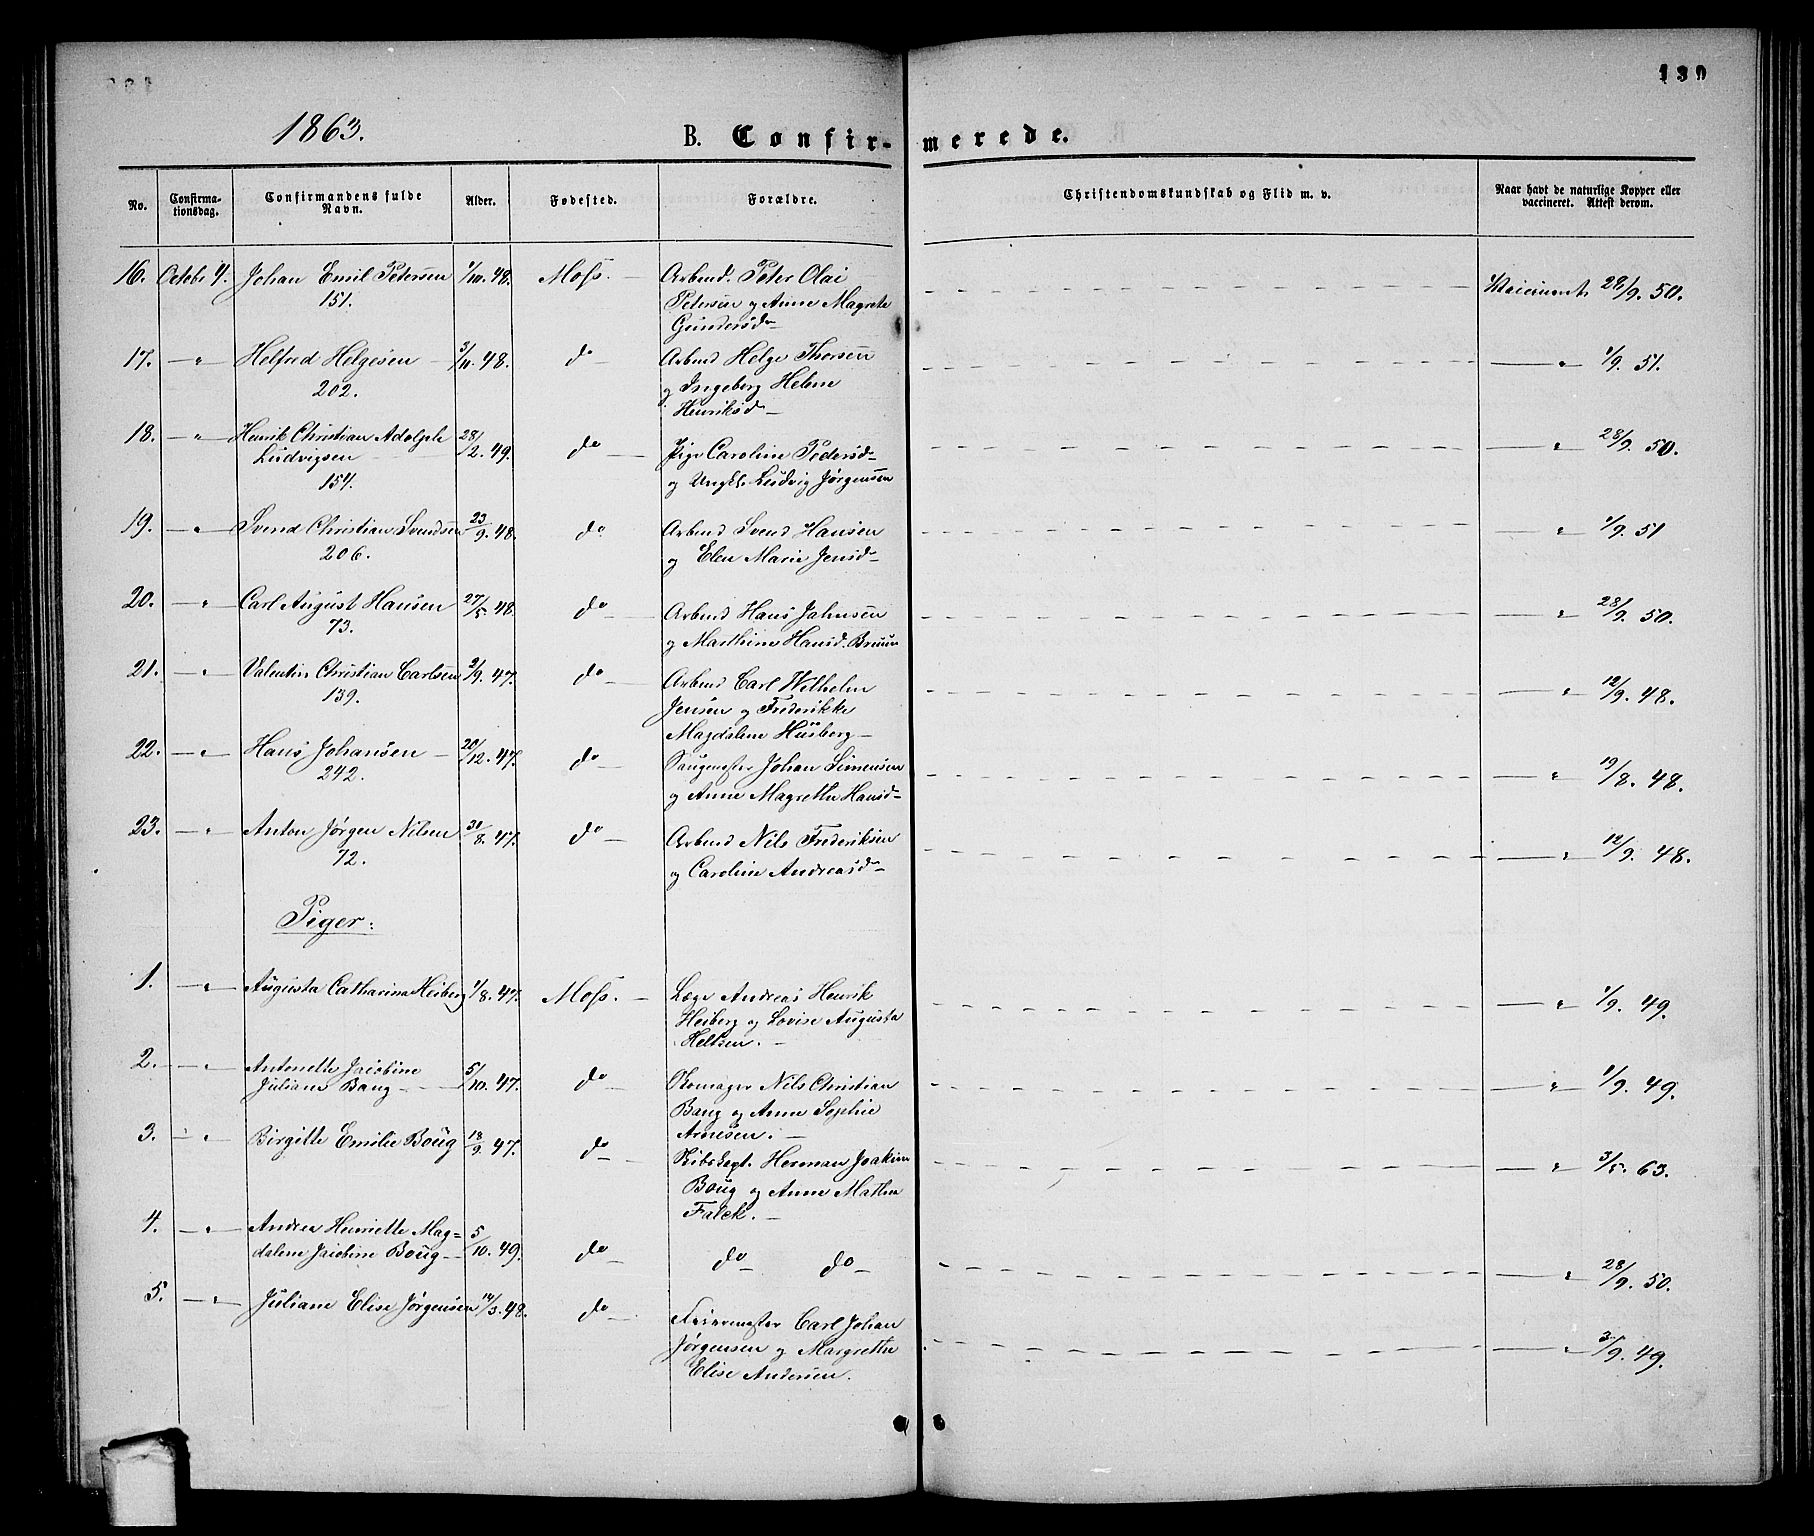 139
1863.
B. Confir-merede.
No. Confirma-tionsdag. Confirmandens fulde Navn. Alder. Fødested. Forældre. Christendomskundskab og Flid m. v. Naar havt de naturlige Kopper eller vaccineret. Attest derom.
16. Octobr 4. Johan Emil Petersen 1/10. 48. Moss. Arbmd. Peter Olai 28/9. 50.
151. Petersen og Anne Magrete
Gundersd
17. — " — Helfred Helgesen 3/11. 48. do Arbmd Helge Thorsen — " — 1/9. 51.
202. og Ingeborg Helene
Henriksd
18. — " — Henrik Christian Adolph 28/2. 49. do Pige Caroline Pedersd — " — 28/9. 50.
Ludvigsen og Ungk. Ludvig Jørgensen
154.
19. — " — Svend Christian Svendsen 23/9. 48. do Arbmd Svend Hansen — " — 1/9. 51
206. og Elen Marie Jensd
20. — " — Carl August Hansen 27/5. 48. do Arbmd Hans Johnsen — " — 28/9. 50.
73. og Marthine Hansd. Bruun
21. — " — Valentin Christian Carlsen 2/9. 47. do Arbmd Carl Wilhelm — " — 12/9. 48.
139. Jensen og Frederikke
Magdalene Husberg
22. — " — Hans Johansen 20/12. 47. do Saugmester Johan Simensen — " — 19/8. 48.
242. og Anne Magrethe Hansd
23. — " — Anton Jørgen Nilsen 30/8. 47. do Arbmd Nils Frederiksen — " — 12/9. 48.
72. og Caroline Andreasd
Piger:
1. — " — Augusta Catharina Heiberg 1/8. 47. Moss. Læge Andreas Henrik — " — 1/9. 49.
Heiberg og Lovise Augusta
Heltzen.
2. — " — Antonette Jacobine 5/10. 47. do Nils Christian — " — 1/9. 49.
Juliane Baug Baug og Anne Sophie
Arnesen.
3. — " — Birgitte Emilie Boug 18/9. 47. do Skibskapt. Herman Joakim — " — 3/5. 63.
Boug og Anne Mathea
Falck.
4. — " — Andrea Henriette Mag- 5/10. 49. do do do — " — 28/9. 50.
dalene Jacobine Boug
5. — " — Juliane Elise Jørgensen 14/3. 48. do Carl Johan — " — 3/9. 49.
Jørgensen og Margrethe
Elise Andersen.